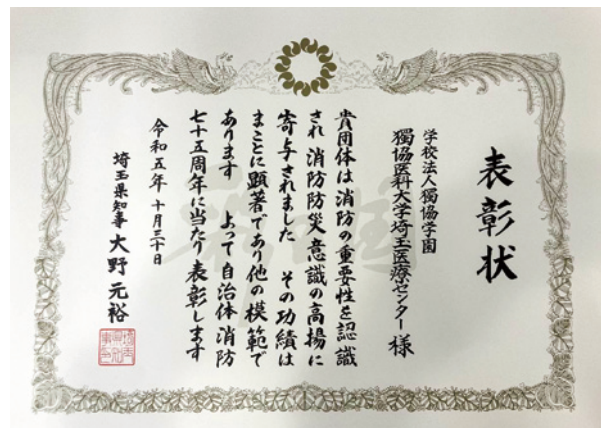 表彰状
学校法人獨協学園
獨協医科大学埼玉医療センター 様
貴団体は消防の重要性を認識
され 消防防災意識の高揚に
寄与されました その功績は
まことに顕著であり他の模範で
あります よって自治体消防
七十五周年に当たり表彰します
令和五年 十月三十日
埼玉県知事 大野元裕
彩の国